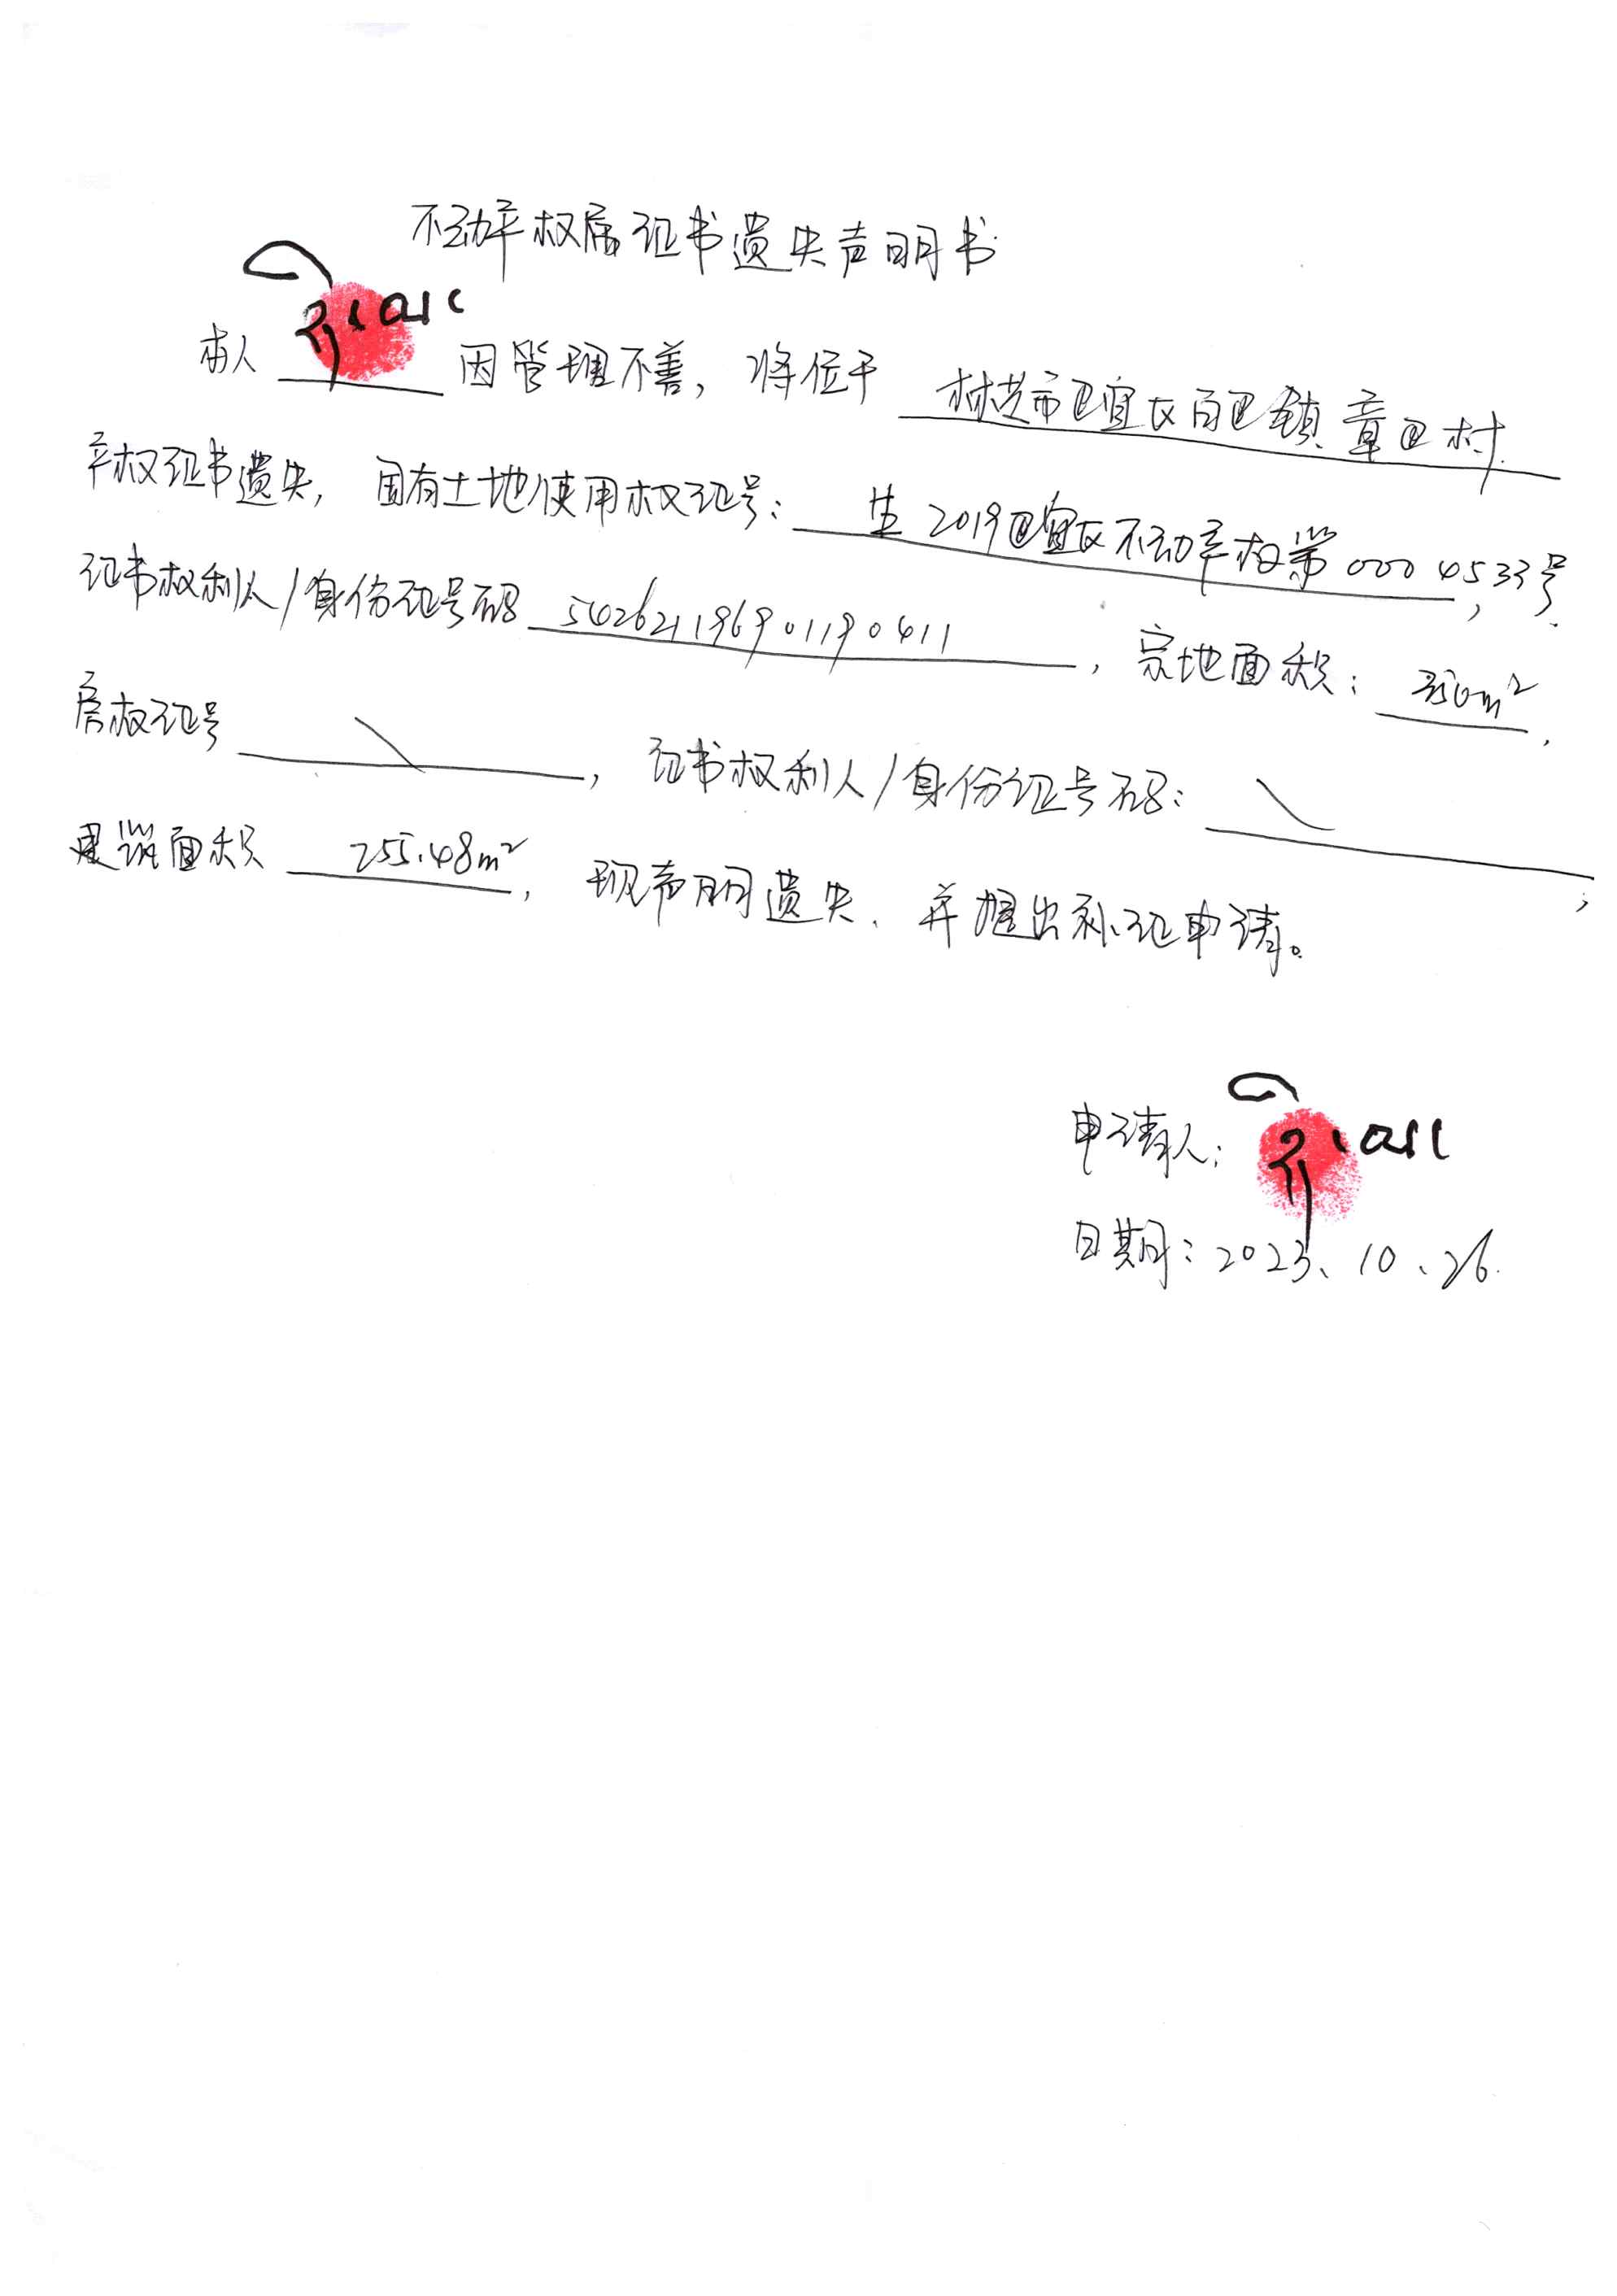 不动产权属证书遗失声明书
本人 因管理不善，将位于 林芝市巴宜区百巴镇章巴村
产权证书遗失，国有土地使用权证号： 2019巴宜区不动产权第0004533号，
证书权利人/身份证号码 542621196901190411，宗地面积：350m²，
房权证号 ，证书权利人/身份证号码： ；
建筑面积 255.48m²，现声明遗失、并提出补证申请。
申请人：
日期：2023、10、26.